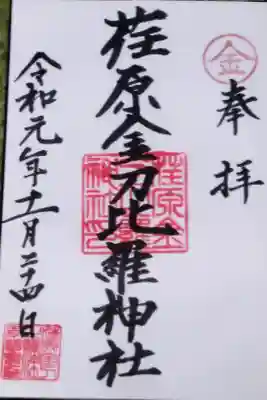 金
奉拝
荏原金刀比羅神社
令和元年十一月二十四日